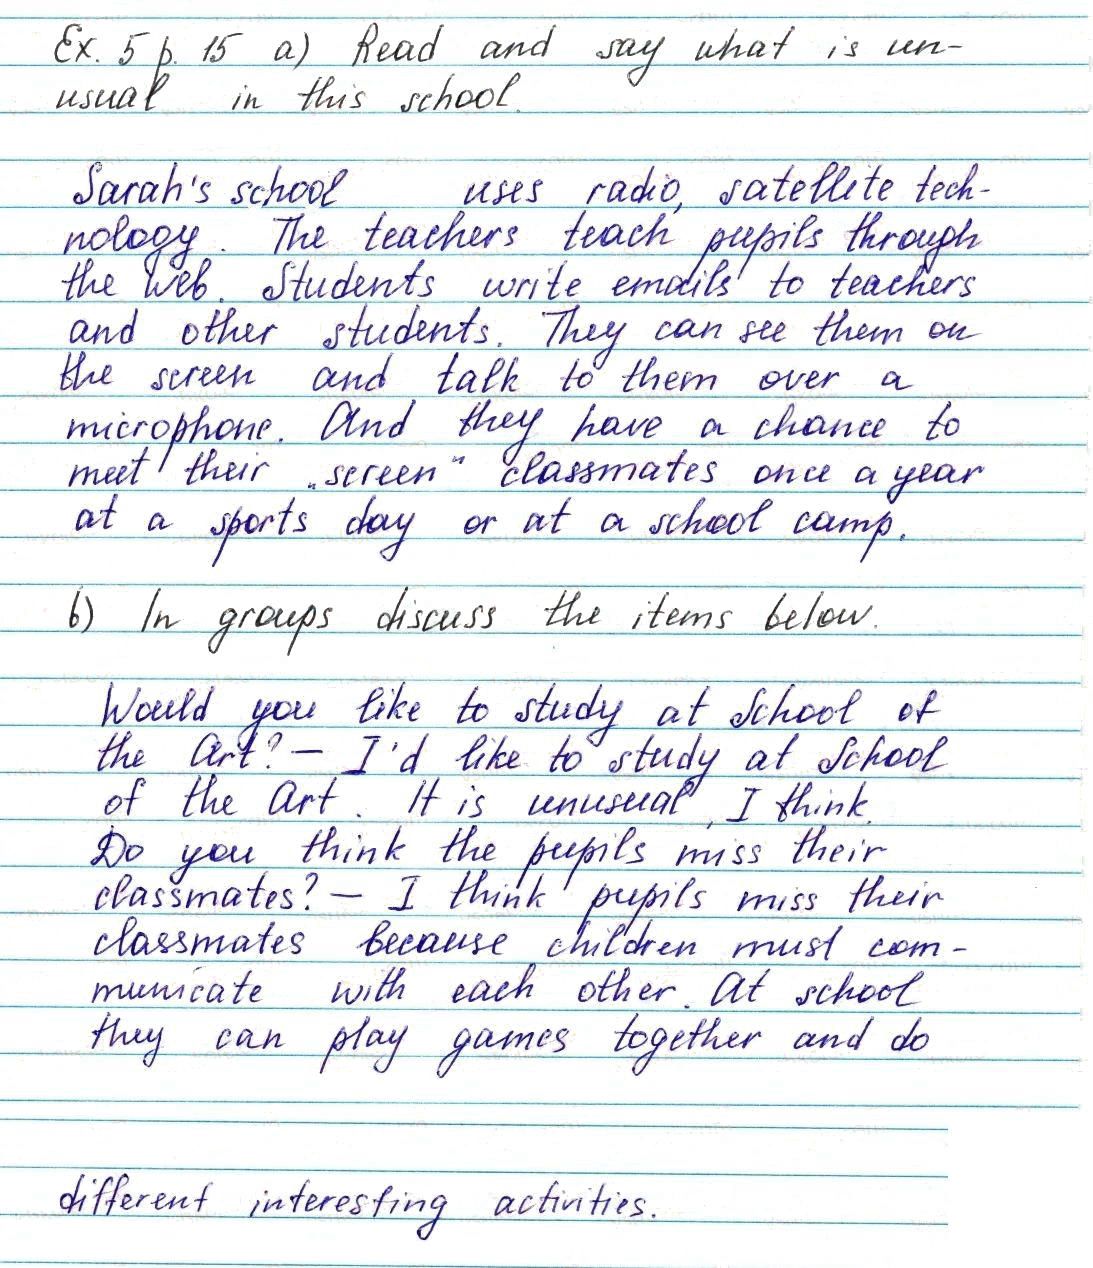 Ex. 5 p. 15 a) Read and say what is un-
usual in this school.
Sarah's school uses radio, satellite tech-
nology. The teachers teach pupils through
the Web. Students write emails to teachers
and other students. They can see them on
the screen and talk to them over a
microphone. And they have a chance to
meet their „screen" classmates once a year
at a sports day or at a school camp.
b) In groups discuss the items below.
Would you like to study at School of
the Art? – I'd like to study at School
of the Art. It is unusual, I think.
Do you think the pupils miss their
classmates? – I think pupils miss their
classmates because children must com-
municate with each other. At school
they can play games together and do
different interesting activities.